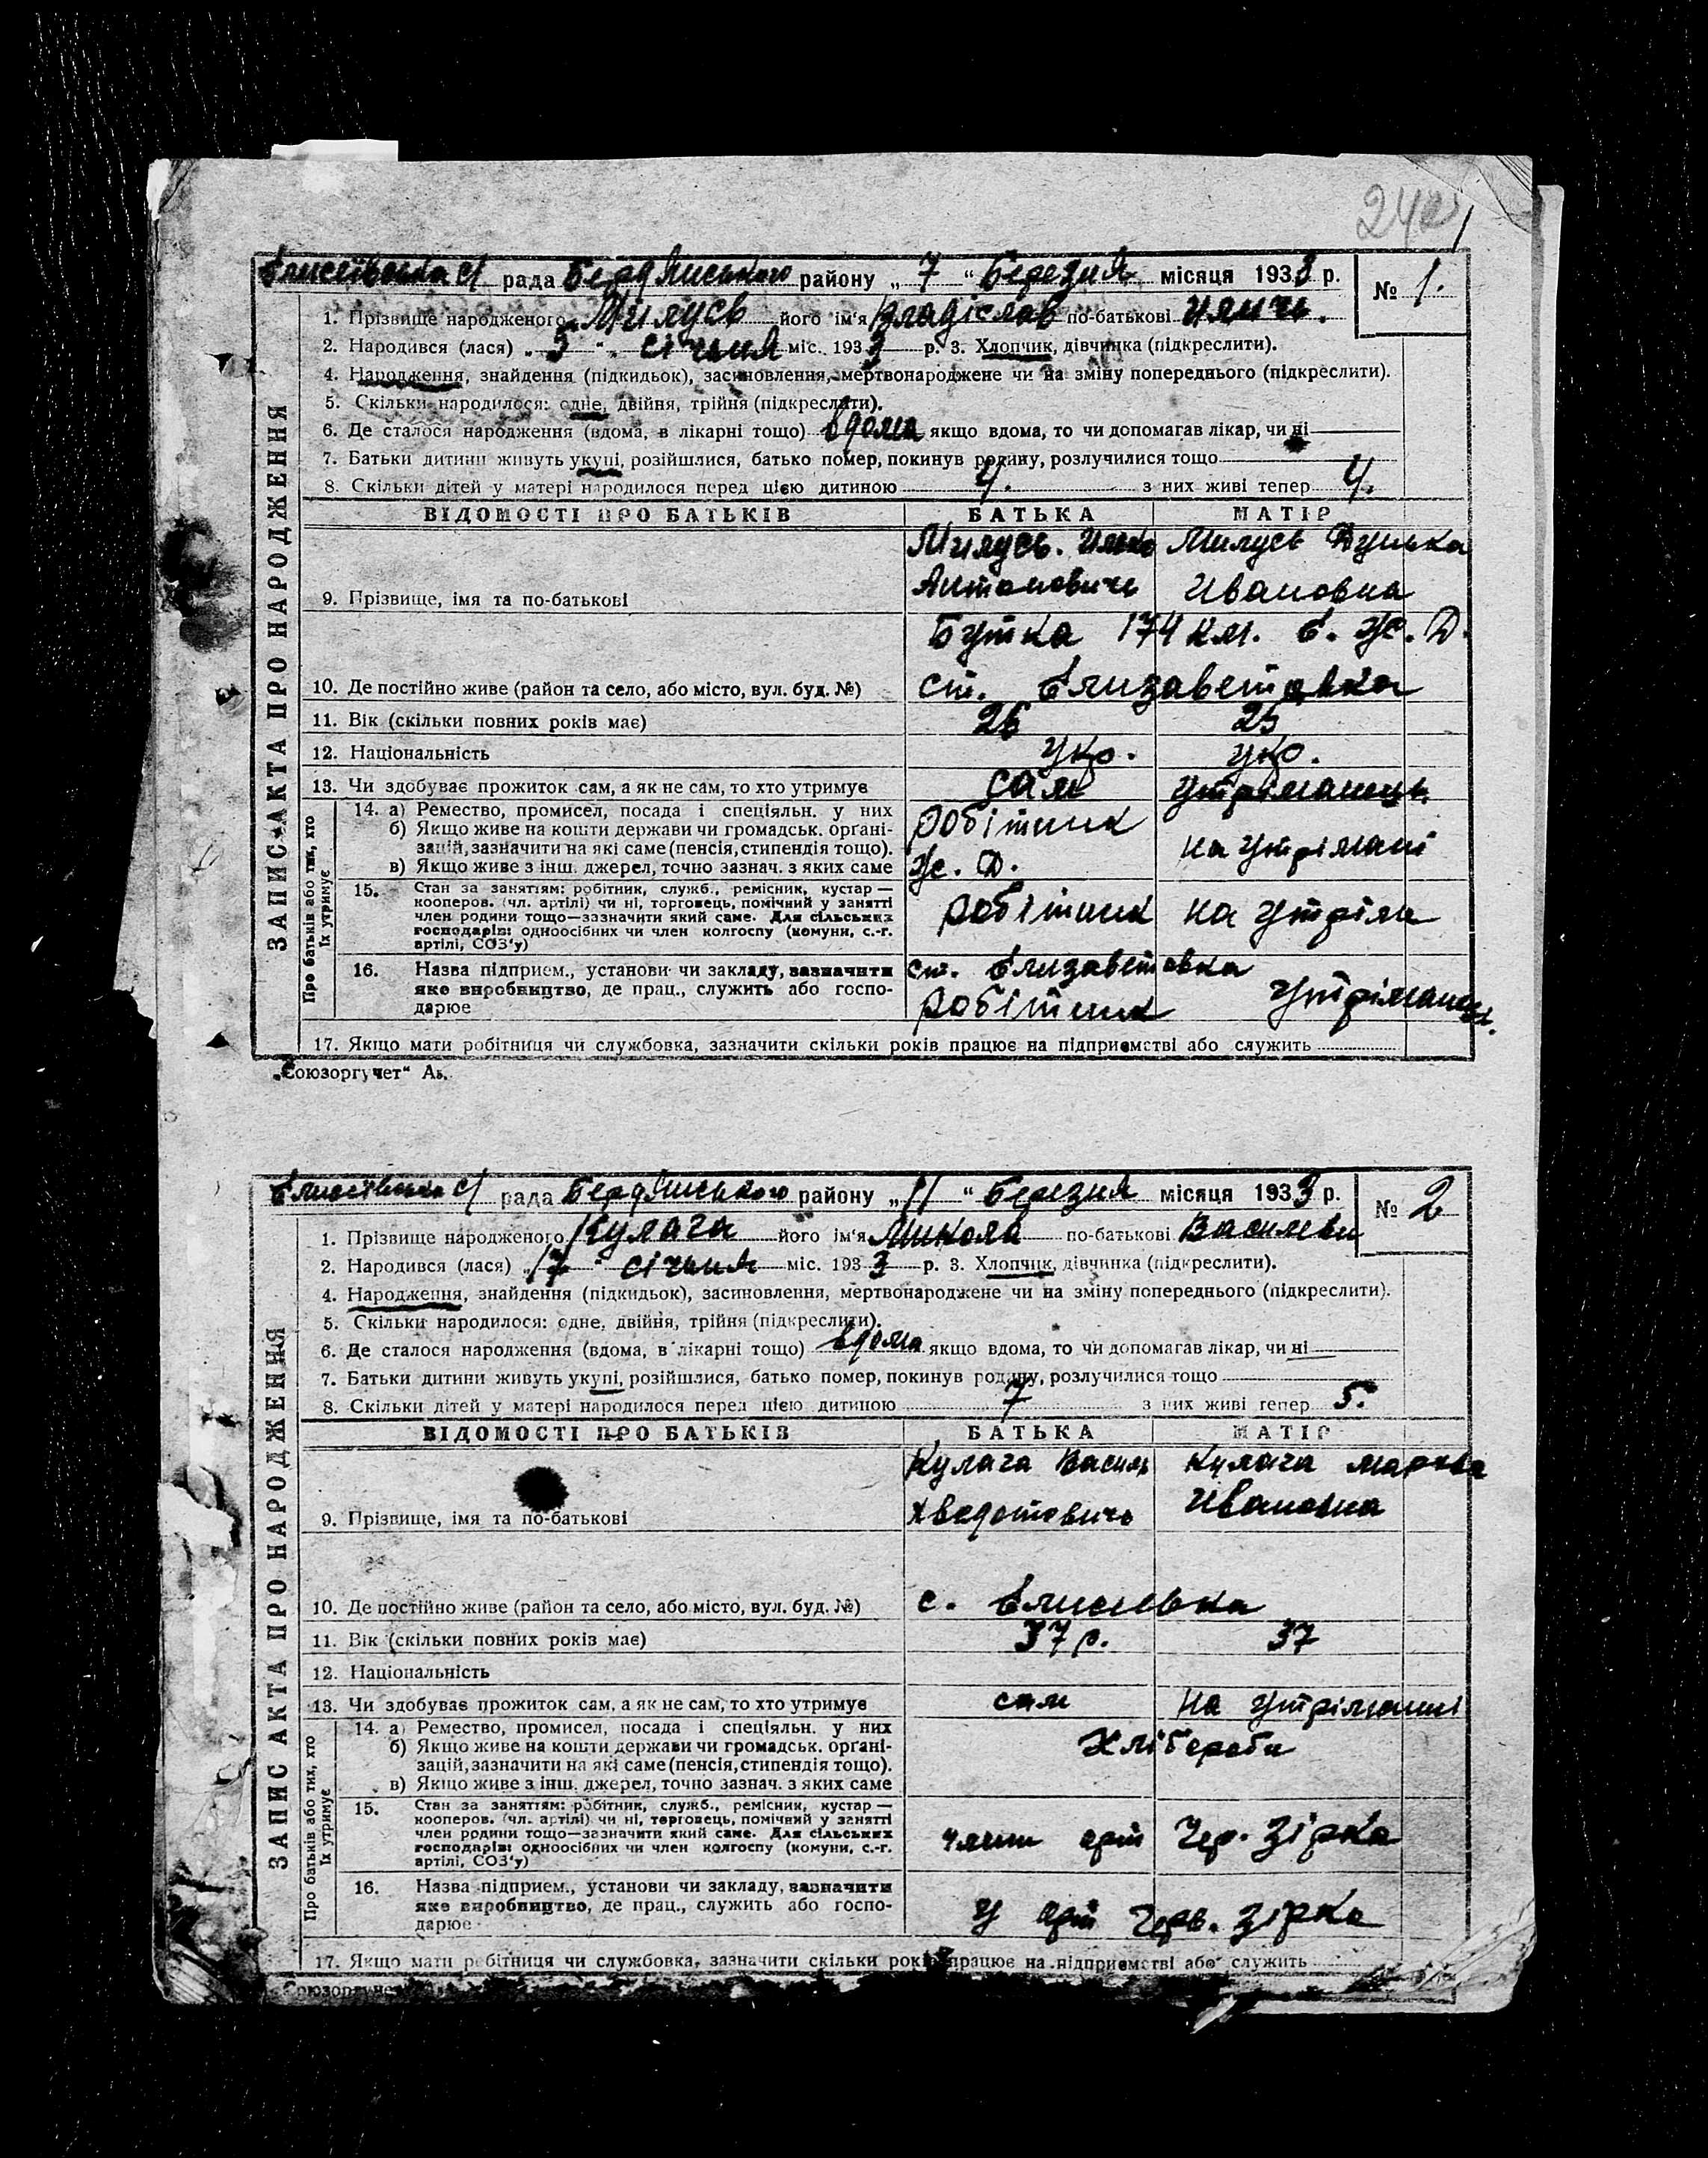 242
1
Єлисеївська с/ рада Бердянського району „ 7 “ Березня місяця 1933 р. № 1.
1. Прізвище народженого Милусь його ім'я Владіслав по-батькові Ильичь.
2. Народився (лася) „ 5 “ січыня міс. 1933 р. 3. Хлопчик, дівчинка (підкреслити).
4. Народження, знайдення (підкидьок), засиновлення, мертвонароджене чи на зміну попереднього (підкреслити).
5. Скільки народилося: одне, двійня, трійня (підкреслити).
6. Де сталося народження (вдома, в лікарні тощо) вдома якщо вдома, то чи допомагав лікар, чи ні
7. Батьки дитини живуть укупі, розійшлися, батько помер, покинув родину, розлучилися тощо
8. Скільки дітей у матері народилося перед цією дитиною 4. з них живі тепер 4.
ЗАПИС АКТА ПРО НАРОДЖЕННЯ
ВІДОМОСТІ ПРО БАТЬКІВ БАТЬКА МАТІР
Милусь. Илько Милусь Дунька
Антоновичь Ивановна
9. Прізвище, імя та по-батькові
Бутка 174 км. Є. Ж. Д.
10. Де постійно живе (район та село, або місто, вул. буд. №) ст. Єлизаветовка
11. Вік (скільки повних років має) 26 25
12. Національність укр. укр.
13. Чи здобуває прожиток сам, а як не сам, то хто утримує сам утріманець
Про батьків або тих, хто
їх утримує
14. а) Ремество, промисел, посада і спеціяльн. у них робітник
б) Якщо живе на кошти держави чи громадськ. орґані-
зацій, зазначити на які саме (пенсія, стипендія тощо). на утрімані
в) Якщо живе з інш. джерел, точно зазнач. з яких саме Ж. Д.
15. Стан за заняттям: робітник, служб., ремісник, кустар —
кооперов. (чл. артілі) чи ні, торговець, помічний у занятті
член родини тощо—зазначити який саме. Для сільських робітник на утрім
господарів: одноосібних чи член колгоспу (комуни, с.-г.
артілі, СОЗ'у)
16. Назва підприєм., установи чи закладу, зазначити ст. Єлизаветовка
яке виробництво, де прац., служить або госпо- робітник утріманец.
дарює
17. Якщо мати робітниця чи службовка, зазначити скільки років працює на підприємстві або служить
„Союзоргучет“
Єлисеївська с/ рада Бердянського району „ 11 “ Березня місяця 1933 р. № 2
1. Прізвище народженого Кулага його ім'я Микола по-батькові Василеви
2. Народився (лася) „ 17 “ січыня міс. 1933 р. 3. Хлопчик, дівчинка (підкреслити).
4. Народження, знайдення (підкидьок), засиновлення, мертвонароджене чи на зміну попереднього (підкреслити).
5. Скільки народилося: одне, двійня, трійня (підкреслити).
6. Де сталося народження (вдома, в лікарні тощо) вдома якщо вдома, то чи допомагав лікар, чи ні
7. Батьки дитини живуть укупі, розійшлися, батько помер, покинув родину, розлучилися тощо
8. Скільки дітей у матері народилося перед цією дитиною 7 з них живі тепер 5.
ЗАПИС АКТА ПРО НАРОДЖЕННЯ
ВІДОМОСТІ ПРО БАТЬКІВ БАТЬКА МАТІР
Кулага Василь Кулага
Хведотовичь Ивановна
9. Прізвище, імя та по-батькові
10. Де постійно живе (район та село, або місто, вул. буд. №) с. Єлисеївка
11. Вік (скільки повних років має) 37 р. 37
12. Національність
13. Чи здобуває прожиток сам, а як не сам, то хто утримує сам на утріманні
Про батьків або тих, хто
їх утримує
14. а) Ремество, промисел, посада і спеціяльн. у них
б) Якщо живе на кошти держави чи громадськ. орґані- Хлібороби
зацій, зазначити на які саме (пенсія, стипендія тощо).
в) Якщо живе з інш. джерел, точно зазнач. з яких саме
15. Стан за заняттям: робітник, служб., ремісник, кустар —
кооперов. (чл. артілі) чи ні, торговець, помічний у занятті
член родини тощо—зазначити який саме. Для сільських члени арт Чер. Зірка
господарів: одноосібних чи член колгоспу (комуни, с.-г.
артілі, СОЗ'у)
16. Назва підприєм., установи чи закладу, зазначити
яке виробництво, де прац., служить або госпо- у арт Черв. Зірка
дарює
17. Якщо мати робітниця чи службовка, зазначити скільки років працює на підприємстві або служить
Союзоргучет